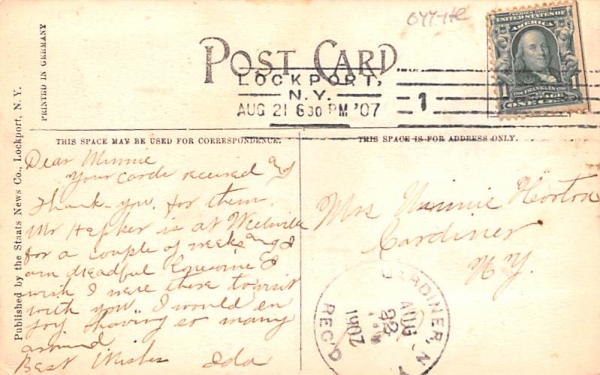 PRINTED IN GERMANY
Published by the Staats News Co., Lockport, N. Y.
POST CARD
LOCKPORT,
N.Y.
AUG 21 6 30 PM '07
1
UNITED STATES OF
AMERICA
1 1
ONE CENT
THIS SPACE MAY BE USED FOR CORRESPONDENCE.
THIS SPACE IS FOR ADDRESS ONLY.
Dear Minnie
Your cards received and
thank you for them.
Mr is at
for a couple of weeks and I
am dreadful &
wish I were there to visit
with you. I would en
joy having so many
around
Best Wishes Ida
Mrs Minnie Horton
Gardiner
N.Y.
GARDINER, N.Y.
AUG
22
1907
REC'D